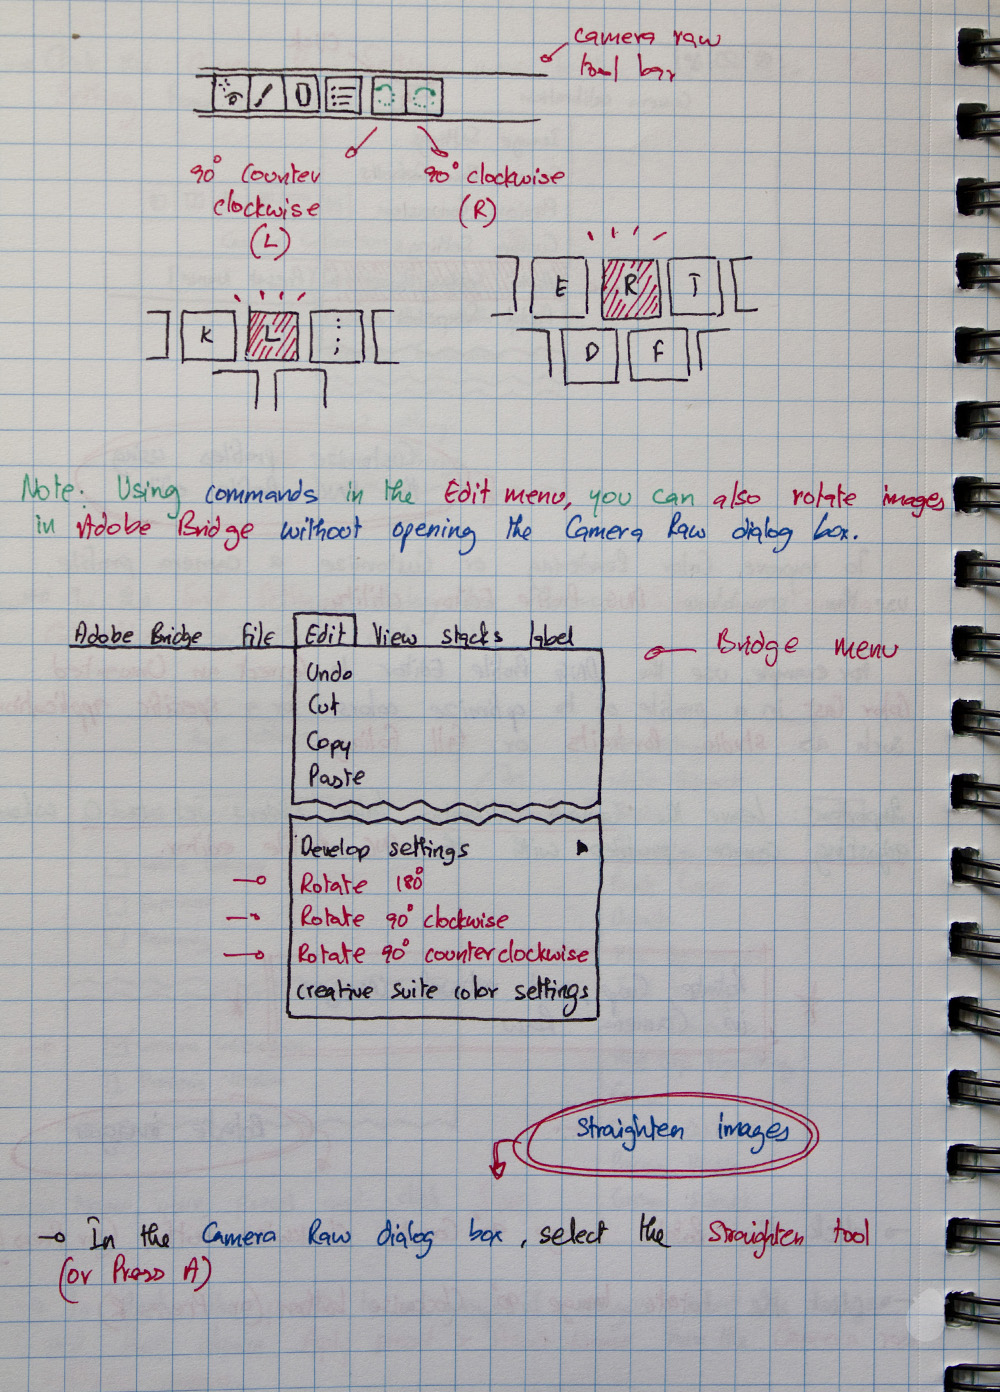 camera raw
tool bar
90° counter
clockwise
(L)
90° clockwise
(R)
E R T
D F
K L :
;
Note: Using commands in the Edit menu, you can also rotate images
in Adobe Bridge without opening the Camera Raw dialog box.
Adobe Bridge File Edit View stacks label
Bridge menu
Undo
Cut
Copy
Paste
Develop settings
Rotate 180°
Rotate 90° clockwise
Rotate 90° counterclockwise
creative suite color settings
Straighten images
In the Camera Raw dialog box, select the Straighten tool
(or Press A)